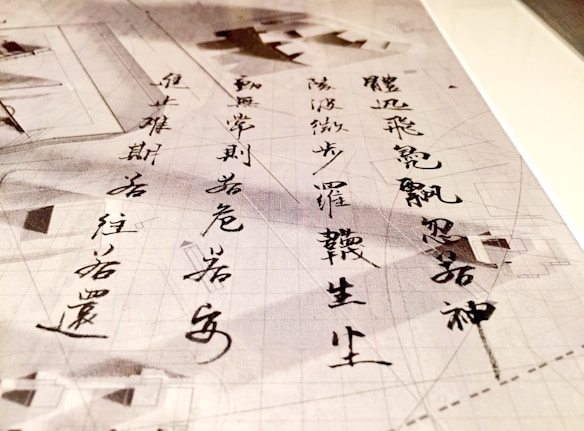 體迅飛鳧飄忽若神
陵波微步羅韤生尘
動無常則若危若安
進止难期若往若還